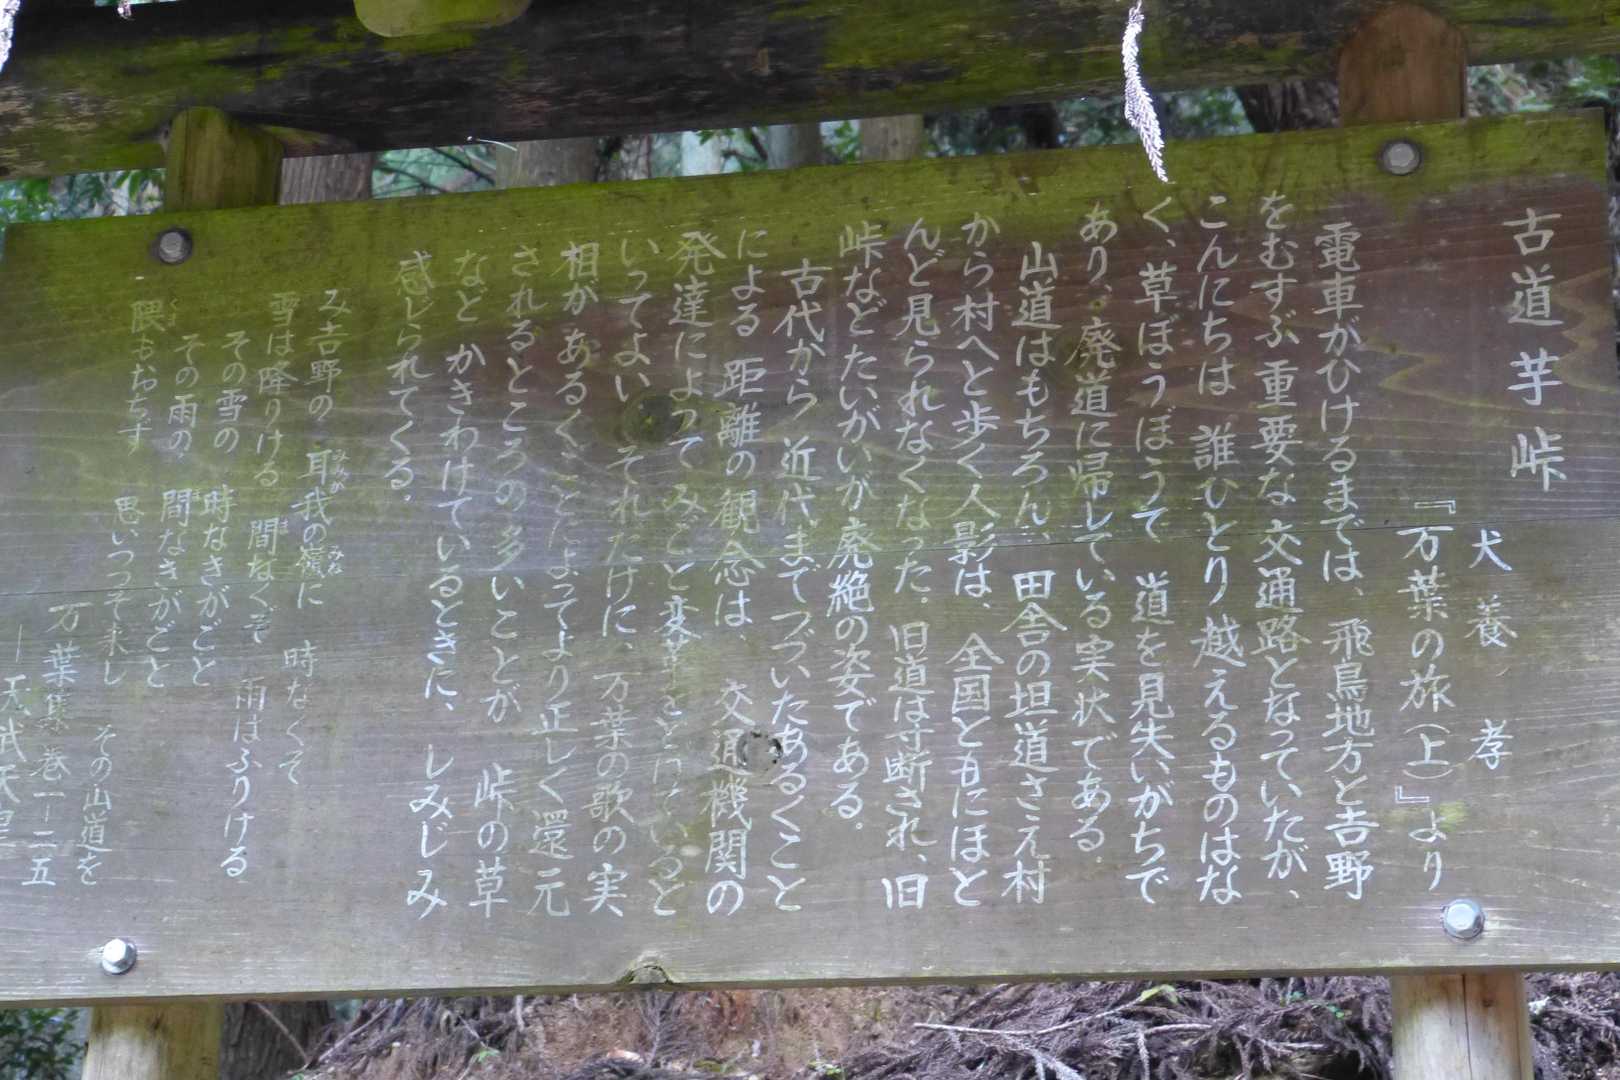 古道芋峠
犬養 孝
『万葉の旅(上)』より
電車がひけるまでは、飛鳥地方と吉野
をむすぶ重要な交通路となっていたが、
こんにちは 誰ひとり越えるものはな
く、草ぼうぼうで 道を見失いがちで
あり、廃道に帰している実状である.
山道はもちろん、田舎の坦道さえ村
から村へと歩く人影は、全国ともにほと
んど見られなくなった. 旧道は寸断され、旧
峠などたいがいが廃絶の姿である.
古代から 近代までつづいたあるくこと
による 距離の観念は、交通機関の
発達によって みごと変革をとげていると
いってよい. それだけに、万葉の歌の実
相があるくことによってより正しく還元
されるところの多いことが 峠の草
など かきわけているときに、しみじみ
感じられてくる.
み吉野の 耳我の嶺に 時なくぞ
みみが みね
雪は降りける 間なくぞ 雨はふりける
ま
その雪の 時なきがごと
その雨の 間なきがごと
隈もおちず 思いつつぞ来し
くま
その山道を
万葉集 巻一ー二五
ー天武天皇